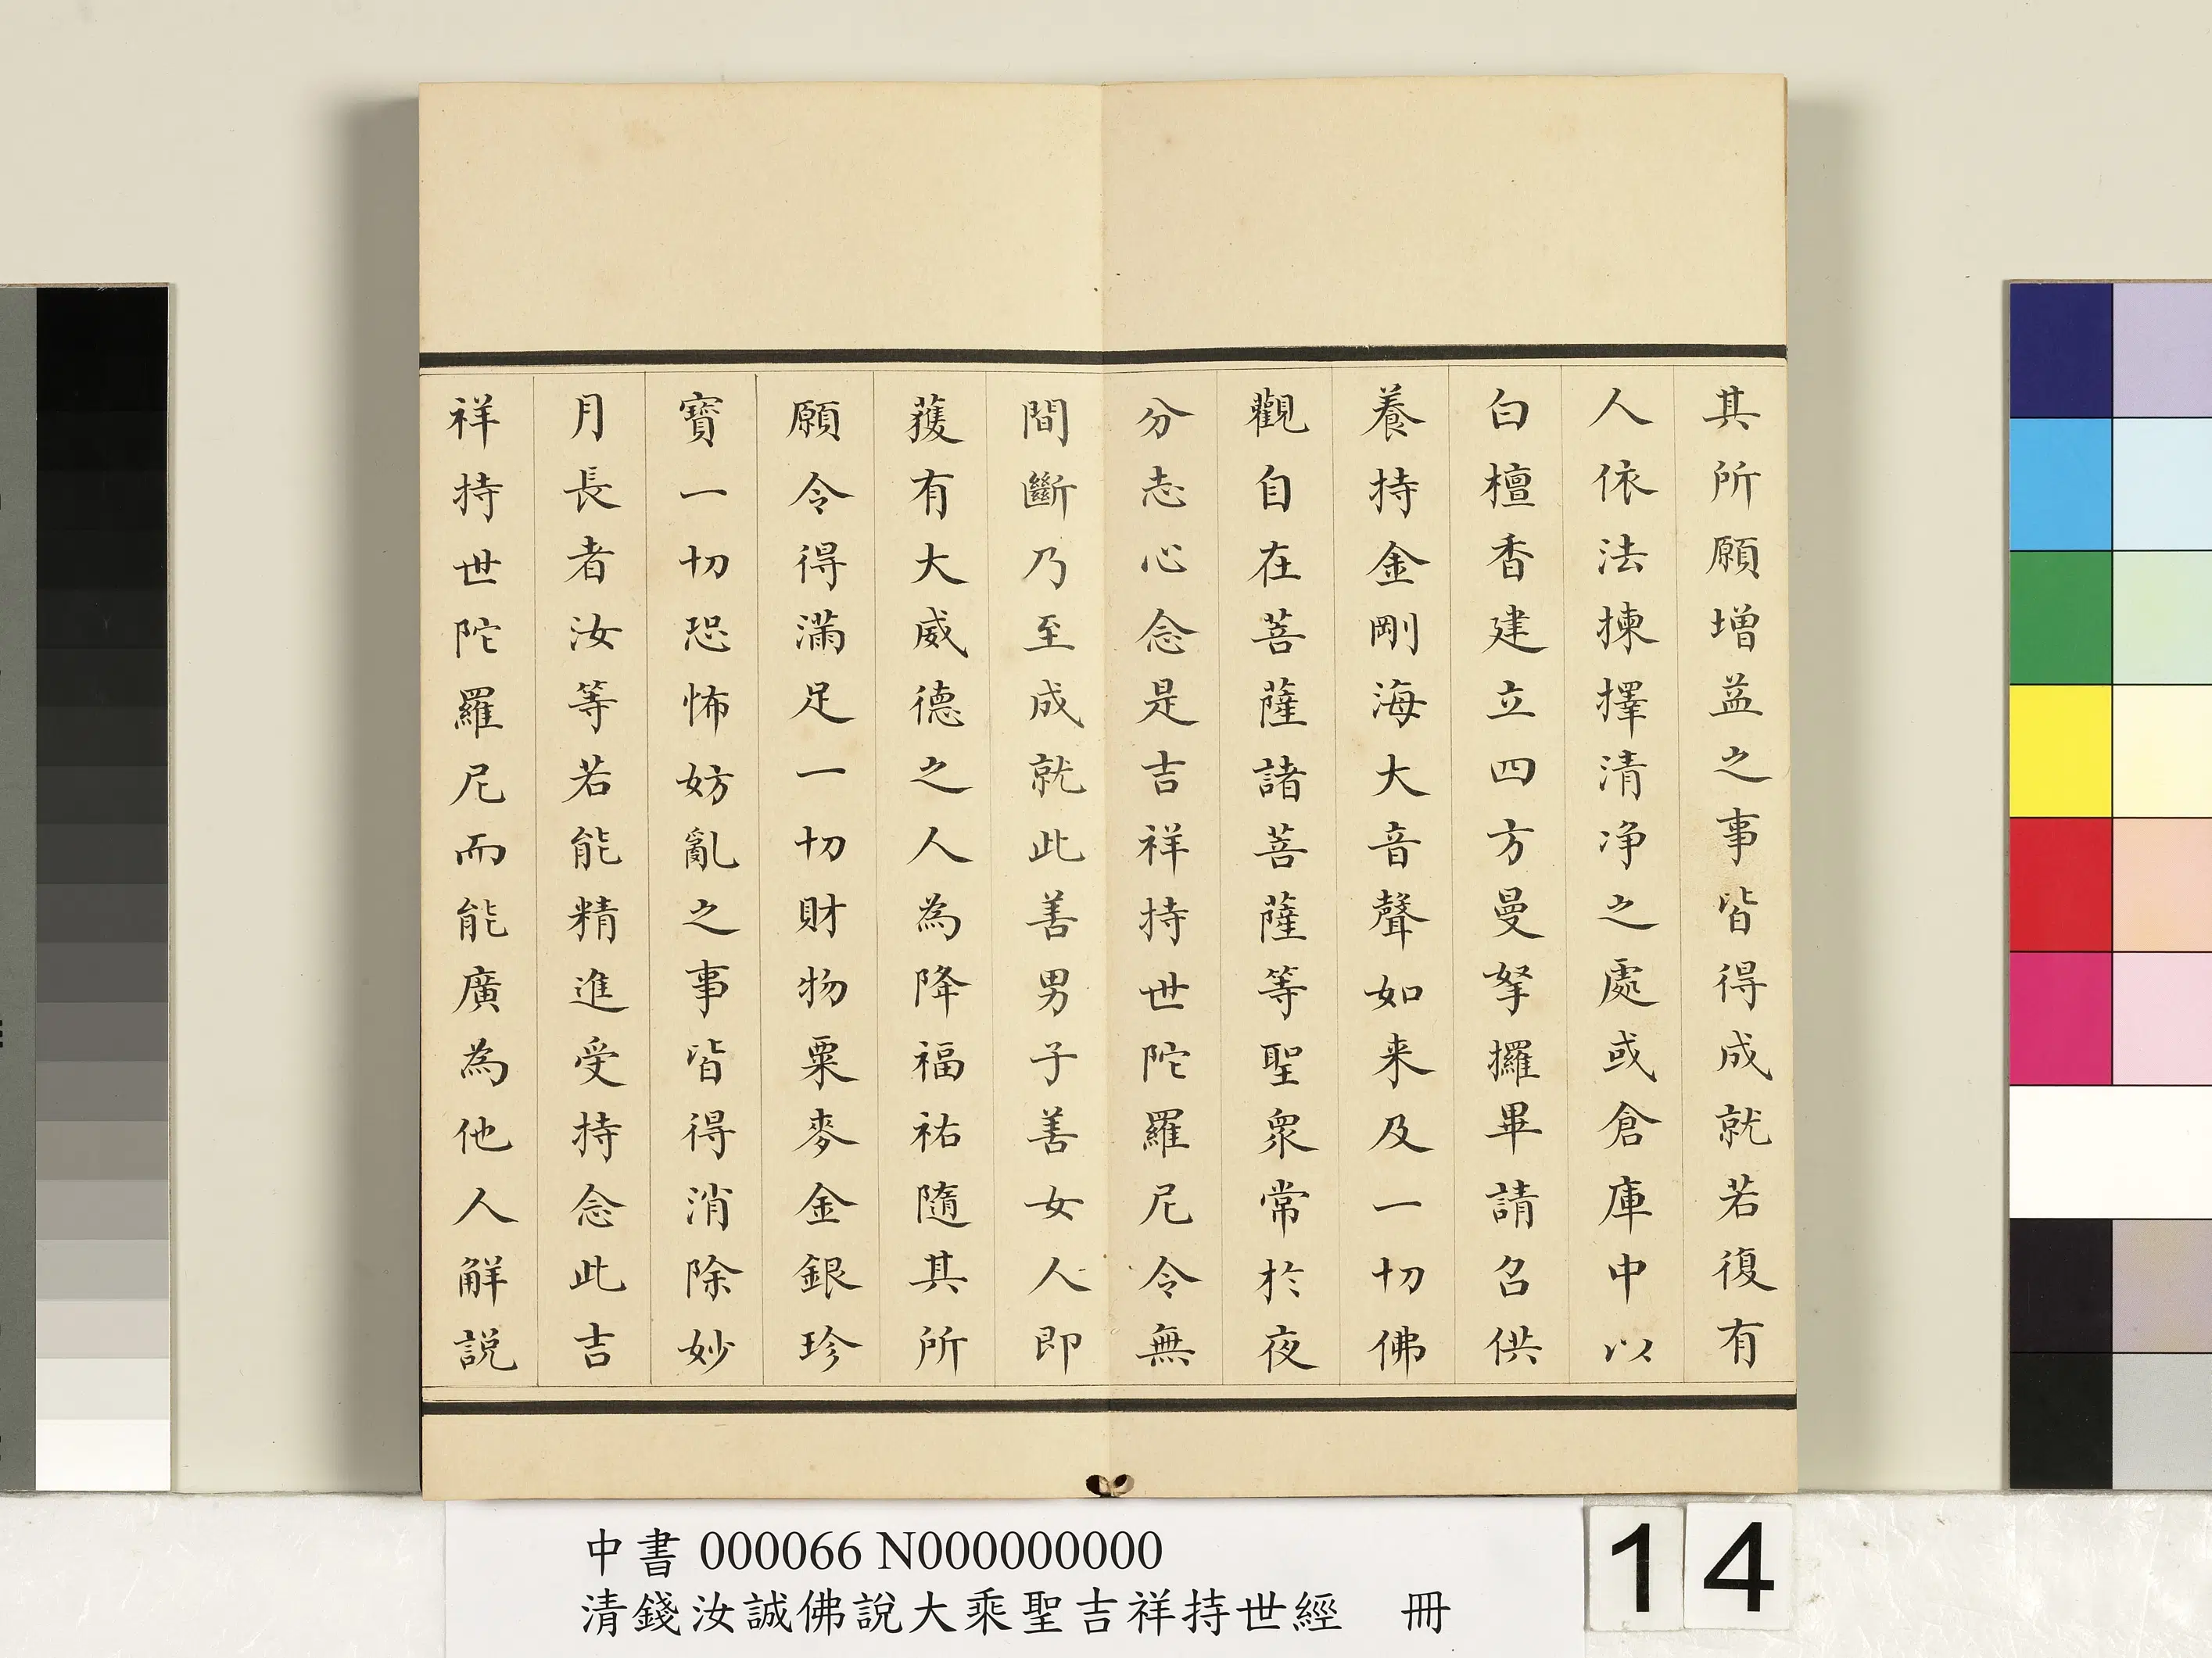 其所願增益之事皆得成就若復有
人依法揀擇清淨之處或倉庫中以
白檀香建立四方曼拏攞畢請召供
養持金剛海大音聲如来及一切佛
觀自在菩薩諸菩薩等聖衆常於夜
分志心念是吉祥持世陀羅尼令無
間斷乃至成就此善男子善女人即
獲有大威德之人為降福祐隨其所
願令得滿足一切財物粟麥金銀珍
寶一切恐怖妨亂之事皆得消除妙
月長者汝等若能精進受持念此吉
祥持世陀羅尼而能廣為他人解説
中書 000066 N000000000
清錢汝誠佛說大乘聖吉祥持世經 冊
14